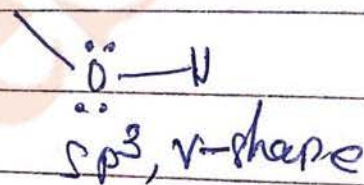 Ö — H
sp³, v-shape